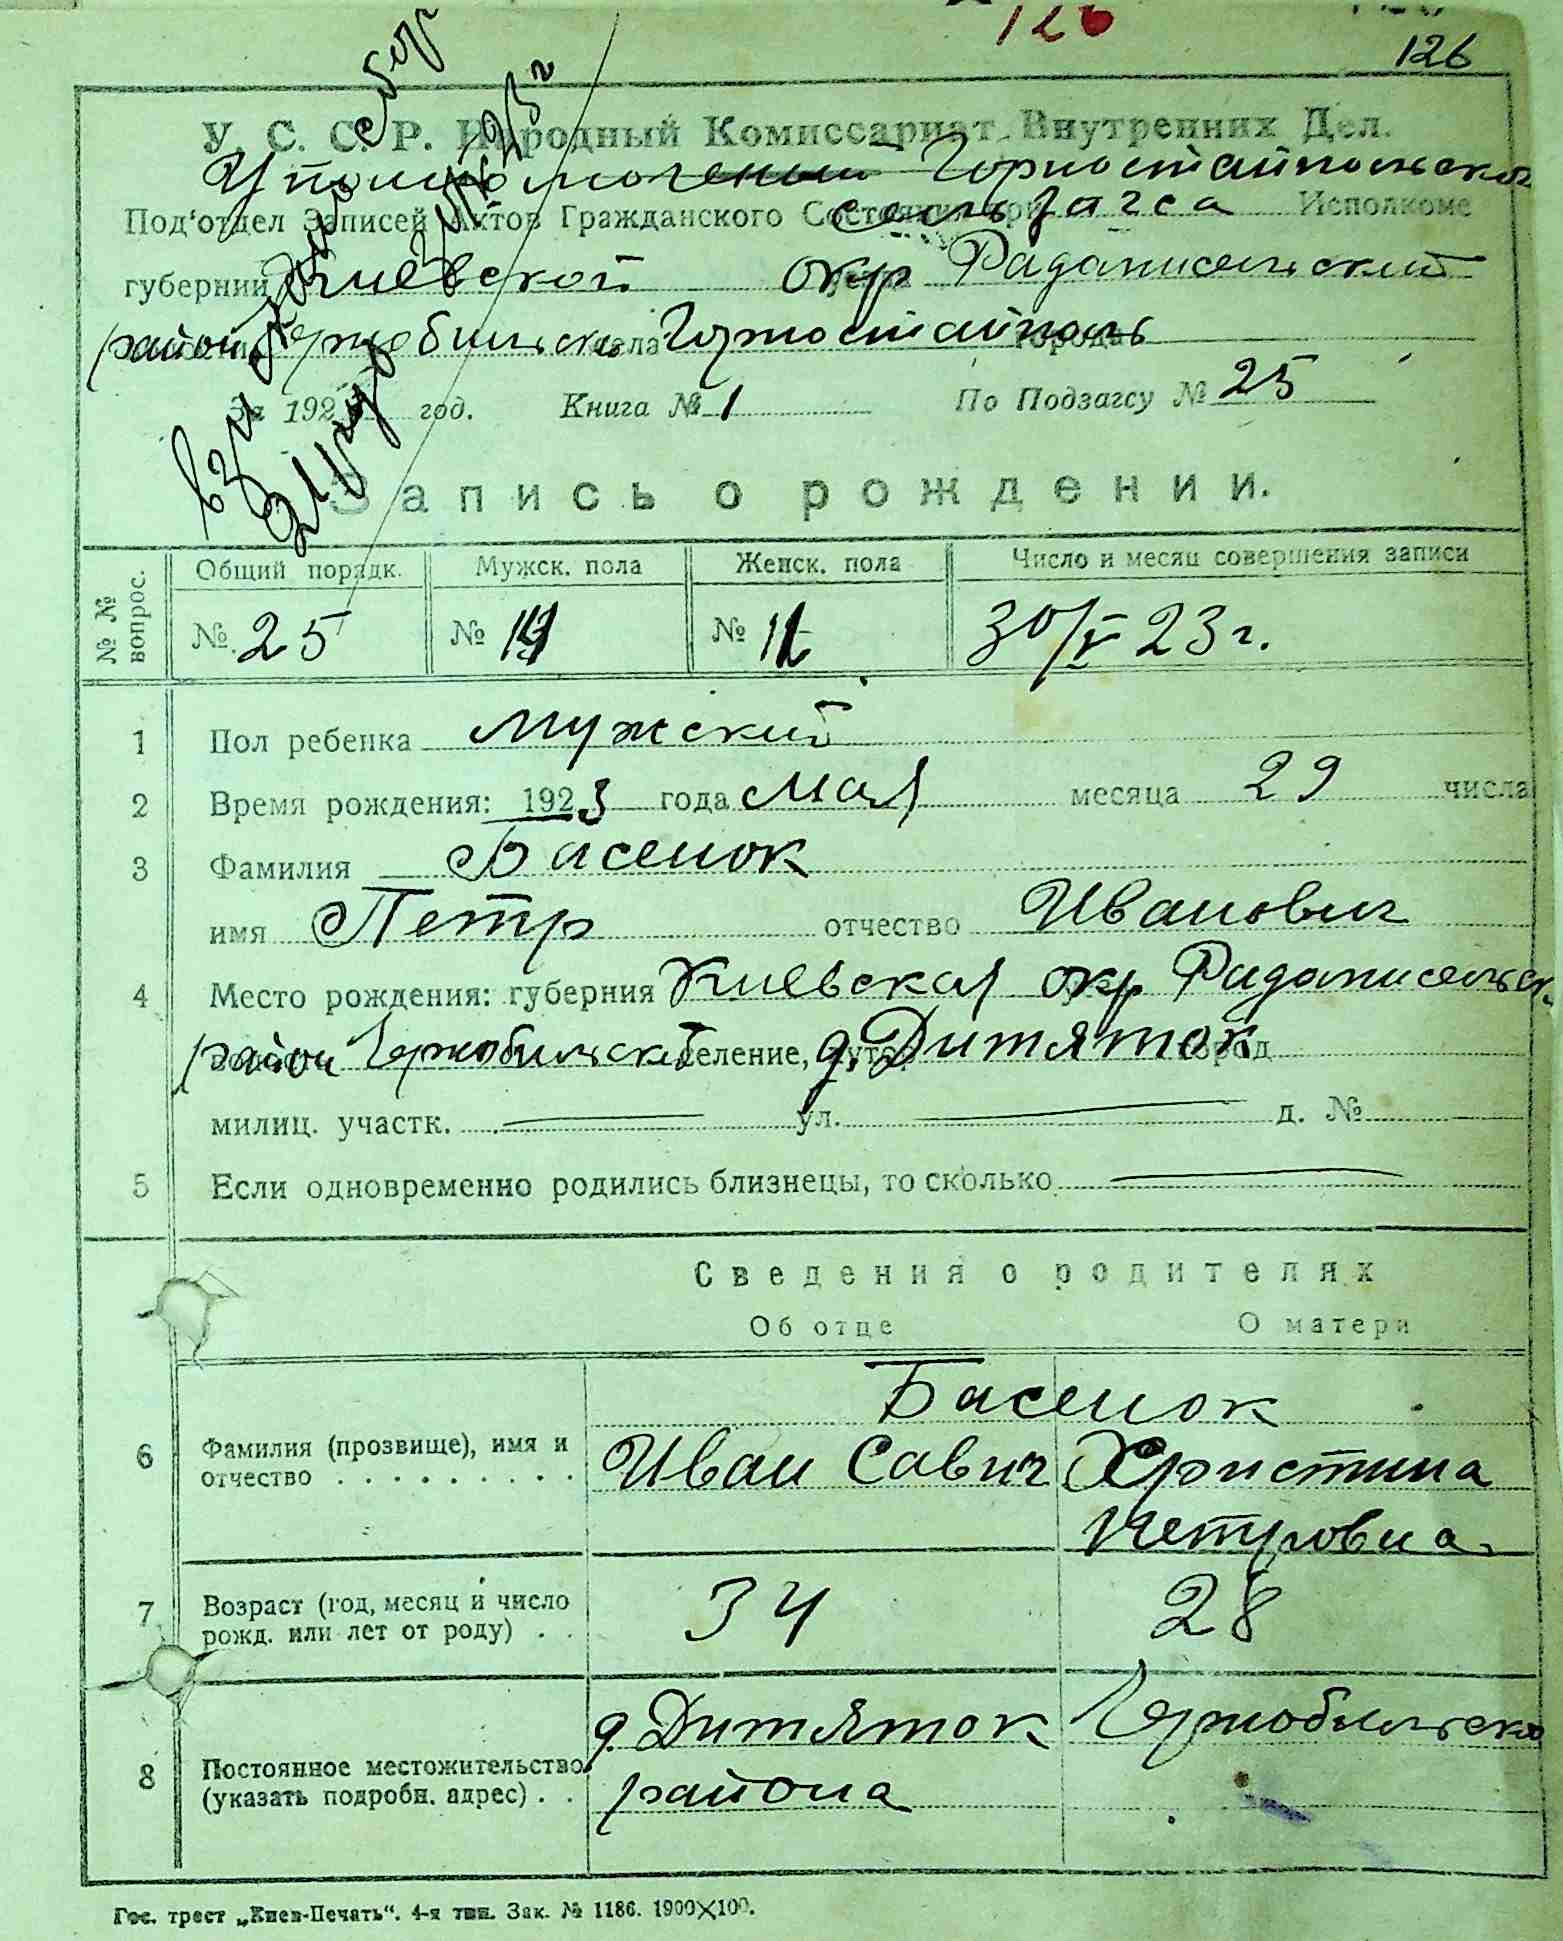 126
126
У. С. С. Р. Народный Комиссариат Внутренних Дел.
Уполномоченный Горностайпольской
Под'отдел Записей Актов Гражданского Состояния при сельзагса Исполкоме
губернии Киевской окр Радомисельский
район Чернобильский села Горностайполь города
За 192 год. Книга № 1 По Подзагсу № 25
Запись о рождении.
№ № вопрос.
Общий порядк. Мужск. пола Женск. пола Число и месяц совершения записи
№ 25 № № 30/V 23 г.
1 Пол ребенка мужский
2 Время рождения: 1923 года мая месяца 29 числа
3 Фамилия Басенок
имя Петр отчество Иванович
4 Место рождения: губерния Киевская окр Радомисельск.
район Чернобильский селение, хутор д. Дитяток город
милиц. участк. ул. д. №
5 Если одновременно родились близнецы, то сколько
Сведения о родителях
Об отце О матери
Басенок
6 Фамилия (прозвище), имя и отчество Иван Савич Христина
Петровна
7 Возраст (год, месяц и число рожд. или лет от роду) 34 28
8 Постоянное местожительство (указать подробн. адрес) д. Дитяток Чернобильско
района
Гос. трест „Киев-Печать“. 4-я тип. Зак. № 1186. 1900×100.